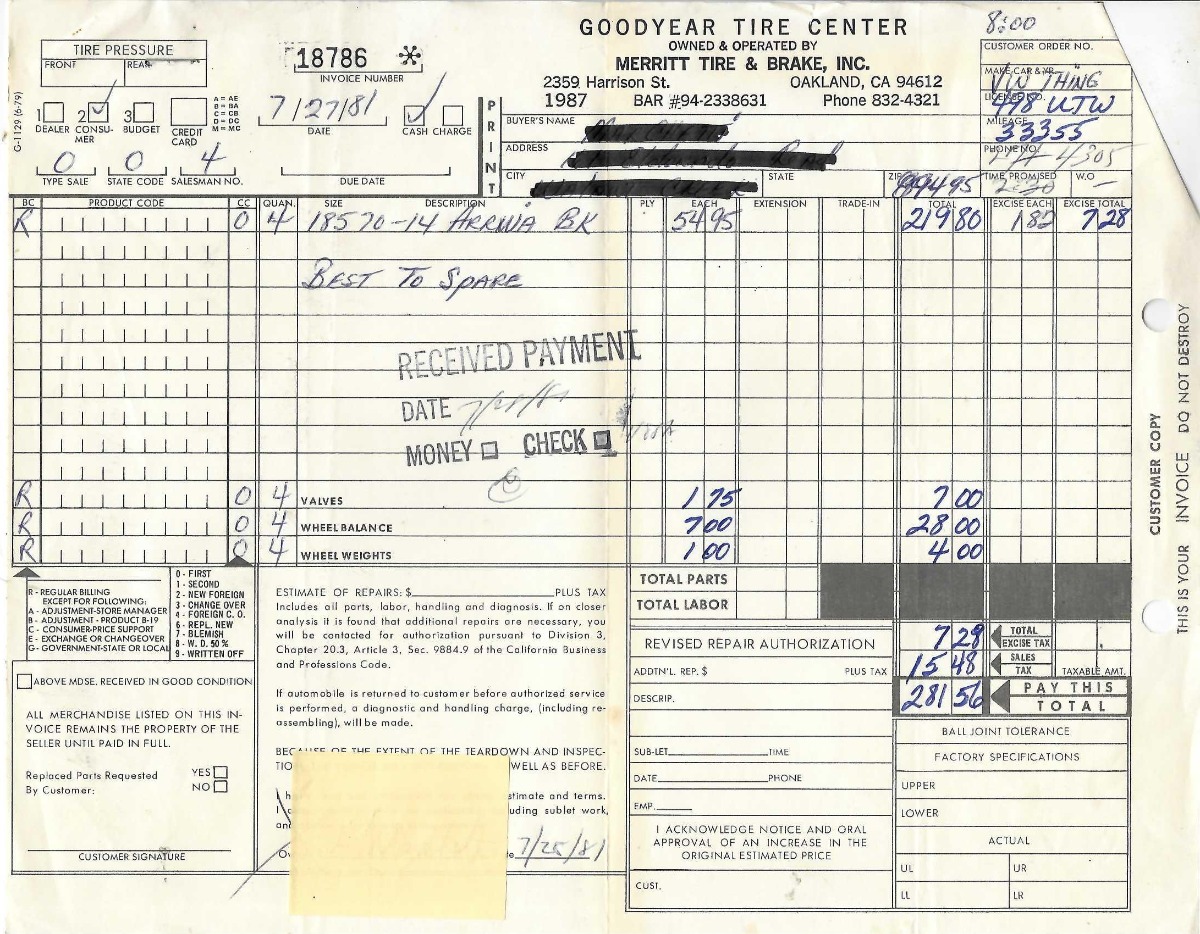 GOODYEAR TIRE CENTER
OWNED & OPERATED BY
MERRITT TIRE & BRAKE, INC.
2359 Harrison St. OAKLAND, CA 94612
1987 BAR #94-2338631 Phone 832-4321
8:00
TIRE PRESSURE
FRONT REAR
18786 *
INVOICE NUMBER
G-1129 (6-79)
1 2 3
DEALER CONSUMER BUDGET CREDIT CARD
A = AE
B = BA
C = CB
D = DC
M = MC
7/27/81
DATE CASH CHARGE
0 0 4
TYPE SALE STATE CODE SALESMAN NO.
DUE DATE
PRINT
BUYER'S NAME
ADDRESS
CITY STATE
CUSTOMER ORDER NO.
MAKE CAR & YR.
THING
LICENSE NO.
498 UTW
MILEAGE
33355
PHONE NO.
4305
TIME PROMISED W.O
BC PRODUCT CODE CC QUAN. SIZE DESCRIPTION PLY EACH EXTENSION TRADE-IN TOTAL EXCISE EACH EXCISE TOTAL
R 0 4 18570-14 ARRIVA BK 54 95 219 80 1 82 7 28
BEST TO SPARE
RECEIVED PAYMENT
DATE
MONEY CHECK
R 0 4 VALVES 1 75 7 00
R 0 4 WHEEL BALANCE 7 00 28 00
R 0 4 WHEEL WEIGHTS 1 00 4 00
R - REGULAR BILLING
EXCEPT FOR FOLLOWING:
A - ADJUSTMENT-STORE MANAGER
B - ADJUSTMENT - PRODUCT B-19
C - CONSUMER-PRICE SUPPORT
E - EXCHANGE OR CHANGEOVER
G - GOVERNMENT-STATE OR LOCAL
0 - FIRST
1 - SECOND
2 - NEW FOREIGN
3 - CHANGE OVER
4 - FOREIGN C. O.
6 - REPL. NEW
7 - BLEMISH
8 - W. D. 50 %
9 - WRITTEN OFF
ABOVE MDSE. RECEIVED IN GOOD CONDITION
ALL MERCHANDISE LISTED ON THIS INVOICE REMAINS THE PROPERTY OF THE SELLER UNTIL PAID IN FULL.
Replaced Parts Requested YES
By Customer: NO
CUSTOMER SIGNATURE
ESTIMATE OF REPAIRS: $ PLUS TAX
Includes all parts, labor, handling and diagnosis. If on closer
analysis it is found that additional repairs are necessary, you
will be contacted for authorization pursuant to Division 3,
Chapter 20.3, Article 3, Sec. 9884.9 of the California Business
and Professions Code.
If automobile is returned to customer before authorized service
is performed, a diagnostic and handling charge, (including re-
assembling), will be made.
BECAUSE OF THE EXTENT OF THE TEARDOWN AND INSPEC-
WELL AS BEFORE.
estimate and terms.
sublet work,
7/25/81
TOTAL PARTS
TOTAL LABOR
REVISED REPAIR AUTHORIZATION
ADDT'N'L. REP. $ PLUS TAX
DESCRIP.
SUB-LET TIME
DATE PHONE
EMP.
I ACKNOWLEDGE NOTICE AND ORAL
APPROVAL OF AN INCREASE IN THE
ORIGINAL ESTIMATED PRICE
CUST.
7 28 TOTAL EXCISE TAX
15 48 SALES TAX TAXABLE AMT.
281 56 PAY THIS TOTAL
BALL JOINT TOLERANCE
FACTORY SPECIFICATIONS
UPPER
LOWER
ACTUAL
UL UR
LL LR
CUSTOMER COPY
THIS IS YOUR INVOICE DO NOT DESTROY